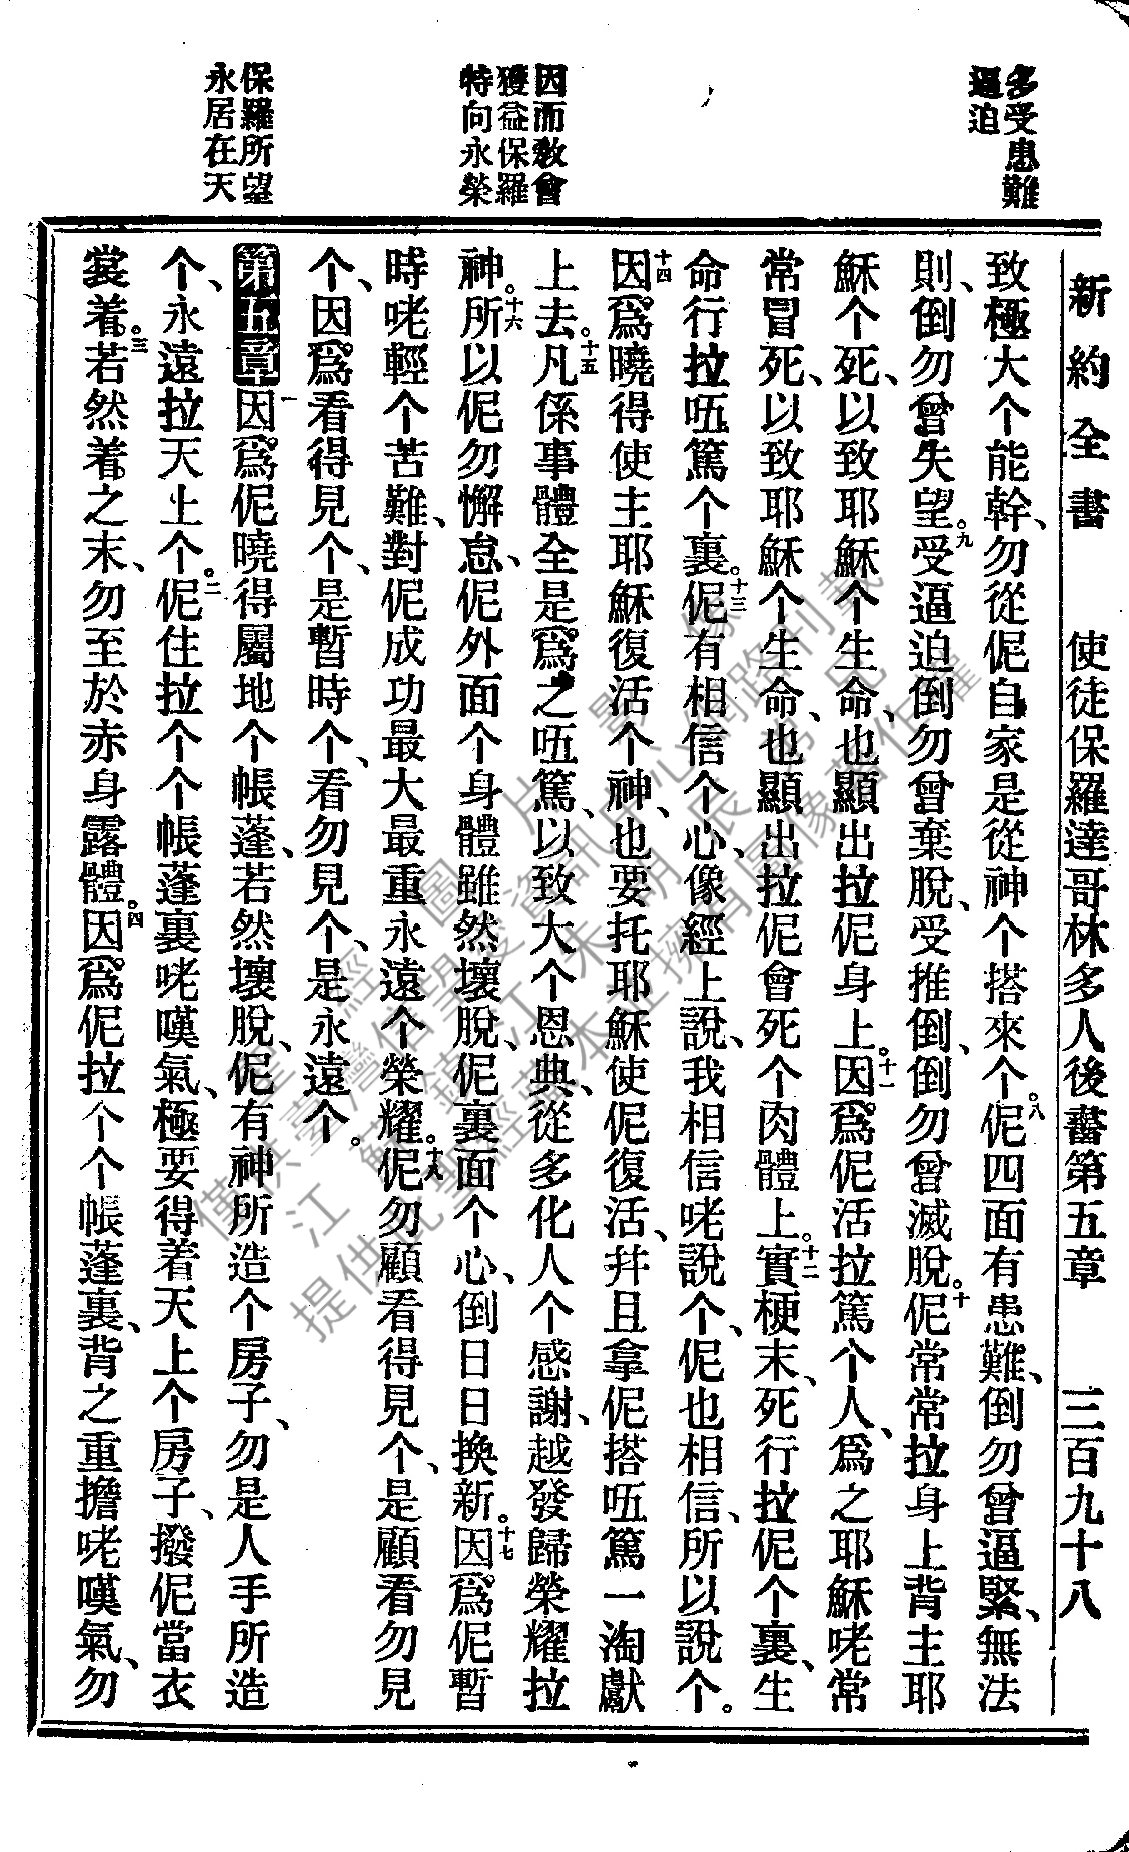 多受患難
逼迫
因而敎會
獲益保羅
特向永榮
保羅所望
永居在天
新約全書 使徒保羅達哥林多人後書第五章 三百九十八
致極大个能幹、勿從伲自家是從神个搭來个。八伲四面有患難、倒勿曾逼緊、無法
則、倒勿曾失望。九受逼迫倒勿曾棄脫、受推倒、倒勿曾滅脫。十伲常常拉身上背主耶
穌个死、以致耶穌个生命、也顯出拉伲身上。十一因爲伲活拉篤个人、爲之耶穌咾常
常冒死、以致耶穌个生命、也顯出拉伲會死个肉體上。十二實梗末、死行拉伲个裏、生
命行拉㕶篤个裏。十三伲有相信个心、像經上說、我相信咾說个、伲也相信、所以說个。
十四因爲曉得使主耶穌復活个神、也要托耶穌使伲復活、幷且拿伲搭㕶篤一淘獻
上去。十五凡係事體全是爲之㕶篤、以致大个恩典、從多化人个感謝、越發歸榮耀拉
神。十六所以伲勿懈怠、伲外面个身體雖然壞脫、伲裏面个心、倒日日換新。十七因爲伲暫
時咾輕个苦難、對伲成功最大最重永遠个榮耀。十八伲勿顧看得見个、是顧看勿見
个、因爲看得見个、是暫時个、看勿見个、是永遠个。
第五章一因爲伲曉得屬地个帳蓬、若然壞脫、伲有神所造个房子、勿是人手所造
个、永遠拉天上个。二伲住拉个个帳蓬裏咾嘆氣、極要得着天上个房子、撥伲當衣
裳着。三若然着之末、勿至於赤身露體。四因爲伲拉个个帳蓬裏、背之重擔咾嘆氣、勿
僅供臺灣信望愛資訊中心網路刊載